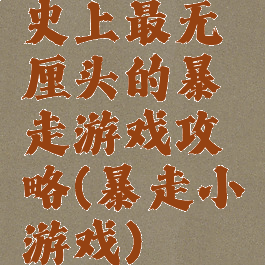 史上最无
厘头的暴
走游戏攻
略(暴走小
游戏)